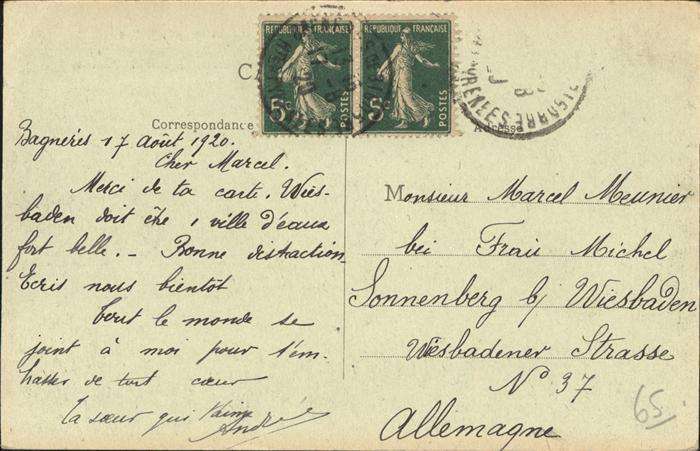 RÉPUBLIQUE FRANÇAISE
5c
POSTES
RÉPUBLIQUE FRANÇAISE
5c
POSTES
Correspondance
Adresse
Bagnères 17 Août 1920.
Cher Marcel.
Merci de ta carte. Wies-
baden doit être 1 ville d'eaux
fort belle. - Bonne distraction
Ecris nous bientôt
Tout le monde se
joint à moi pour t'em-
brasser de tout cœur
Ta sœur qui t'aime
Andrée
Monsieur Marcel Meunier
bei Frau Michel
Sonnenberg b/ Wiesbaden
Wiesbadener Strasse
No 37
Allemagne
65